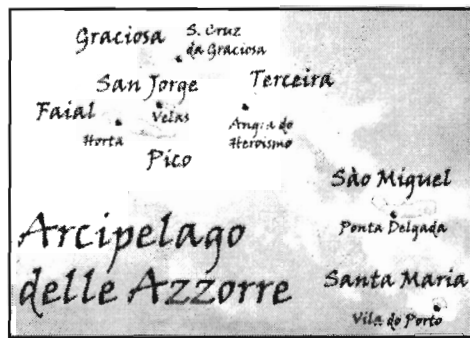 Graciosa
S. Cruz
da Graciosa
San Jorge
Terceira
Faial
Velas
Horta
Angra do
Heroismo
Pico
Sào Miguel
Ponta Delgada
Arcipelago
delle Azzorre
Santa Maria
Vila do Porto